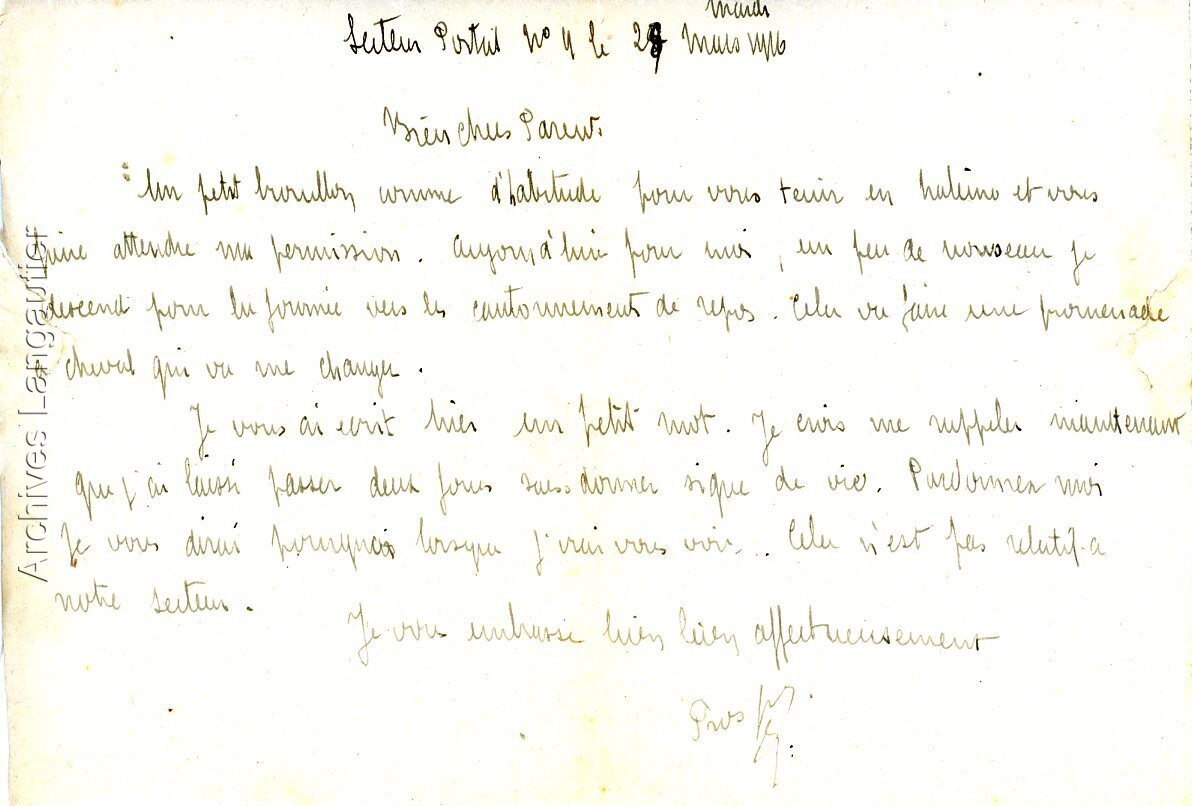 mardi
Secteur Postal No 4 le 28 Mars 1916
Bien chers Parents
Un petit brouillon comme d'habitude pour vous tenir en haleine et vous
faire attendre ma permission. Aujourd'hui pour moi, un peu de nouveau je
descend pour la journée vers les cantonnements de repos. Cela va faire une promenade
a cheval qui va me changer.
Je vous ai ecrit hier un petit mot. Je crois me rappeler maintenant
que j'ai laissé passer deux jours sans donner signe de vie. Pardonnez moi
Je vous dirai pourquoi lorsque j'irai vous voir.. Cela n'est pas relatif a
notre secteur.
Je vous embrasse bien bien affectueusement
Prosper
Archives Langautier